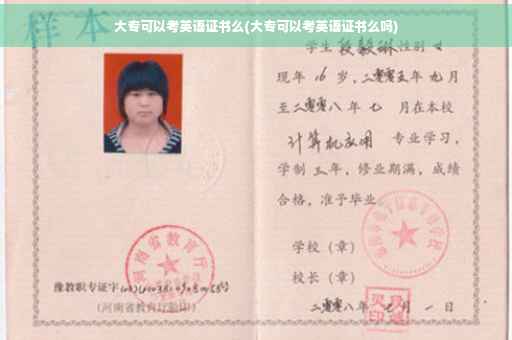 大专可以考英语证书么(大专可以考英语证书么吗)
样本
学生段毅琳性别女
现年16岁，二零零五年九月
至二零零八年七月在本校
计算机应用 专业学习，
学制三年，修业期满，成绩
合格，准予毕业
学校（章）
校长（章）
二零零八年七月一日
河南省教育厅
豫教职专证字
(河南省教育厅验印)